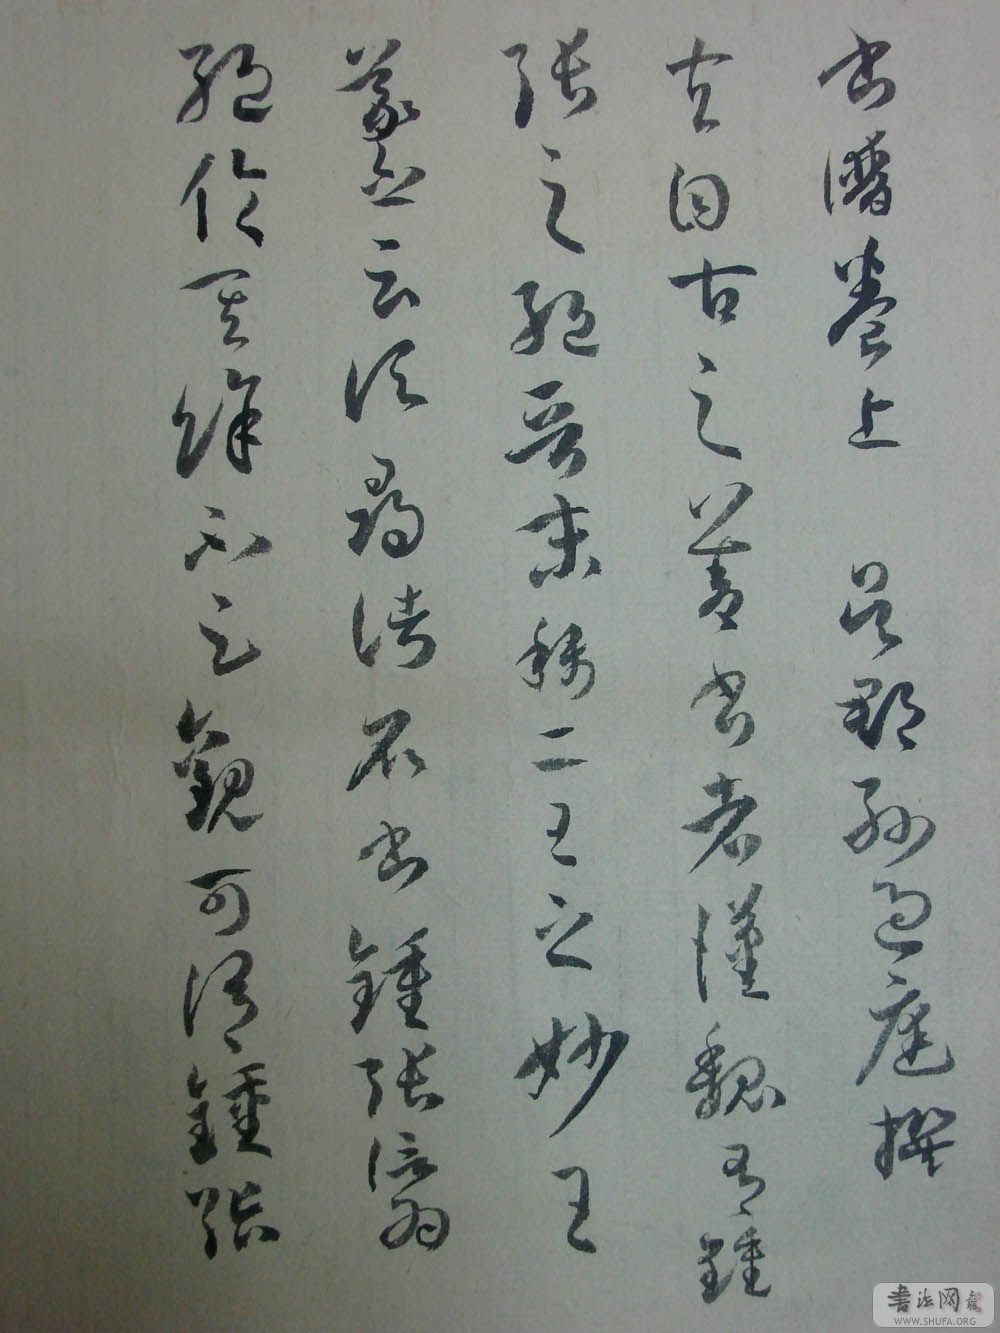 書譜卷上 吳郡孫過庭撰
夫自古之善書者漢魏有鍾
張之絕晉末稱二王之妙王
羲之云頃尋諸名書鍾張信為
絕倫其餘不足觀可謂鍾張
書法网
WWW.SHUFA.ORG